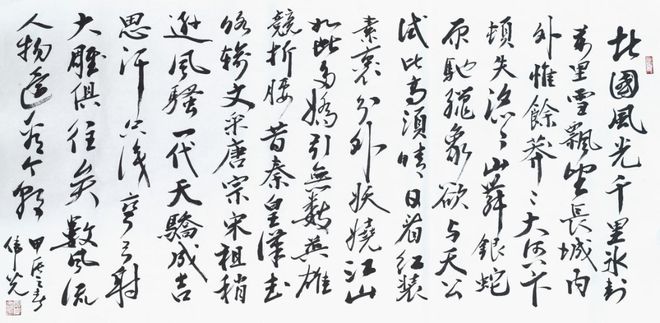 北國風光千里冰封
萬里雪飄望長城内
外惟餘莽々大河上下
頓失滔々山舞銀蛇
原馳蠟象欲与天公
試比高須晴日看紅裝
素裹分外妖嬈江山
如此多嬌引無數英雄
競折腰昔秦皇漢武
略輸文采唐宗宋祖稍
遜風騷一代天驕成吉
思汗只識彎弓射
大雕俱往矣數風流
人物還看今朝
甲辰之春